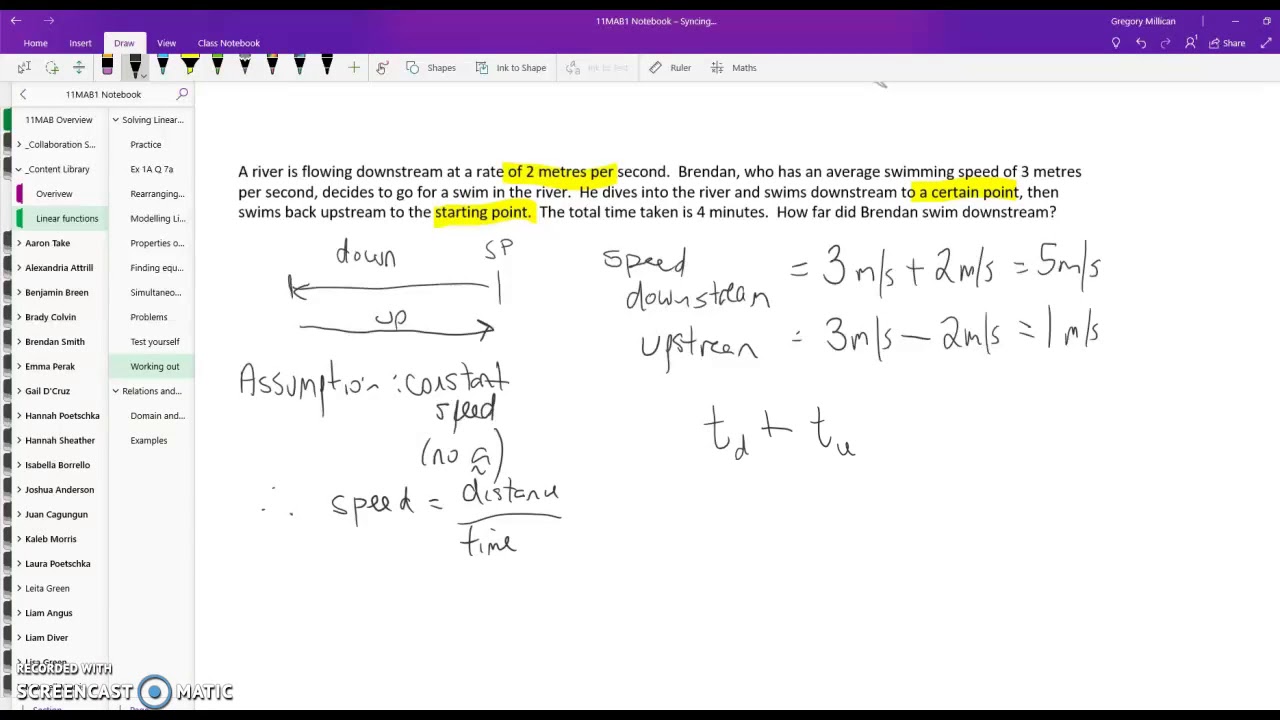 11MAB1 Notebook – Syncing...
Gregory Millican
Home Insert Draw View Class Notebook
Share
Shapes Ink to Shape Ink to Text Ruler Maths
11MAB1 Notebook
11MAB Overview
_Collaboration S...
_Content Library
Overivew
Linear functions
Aaron Take
Alexandria Attrill
Benjamin Breen
Brady Colvin
Brendan Smith
Emma Perak
Gail D'Cruz
Hannah Poetschka
Hannah Sheather
Isabella Borrello
Joshua Anderson
Juan Cagungun
Kaleb Morris
Laura Poetschka
Leita Green
Liam Angus
Liam Diver
Lisa Green
Section
Solving Linear...
Practice
Ex 1A Q 7a
Rearranging...
Modelling Li...
Properties o...
Finding equ...
Simultaneo...
Problems
Test yourself
Working out
Relations and...
Domain and...
Examples
A river is flowing downstream at a rate of 2 metres per second. Brendan, who has an average swimming speed of 3 metres
per second, decides to go for a swim in the river. He dives into the river and swims downstream to a certain point, then
swims back upstream to the starting point. The total time taken is 4 minutes. How far did Brendan swim downstream?
down SP
up
Assumption : constant
speed
(no a)
∴ speed = distance
time
speed
downstream = 3m/s + 2m/s = 5m/s
upstream = 3m/s – 2m/s = 1m/s
t_d + t_u
RECORDED WITH
SCREENCAST MATIC